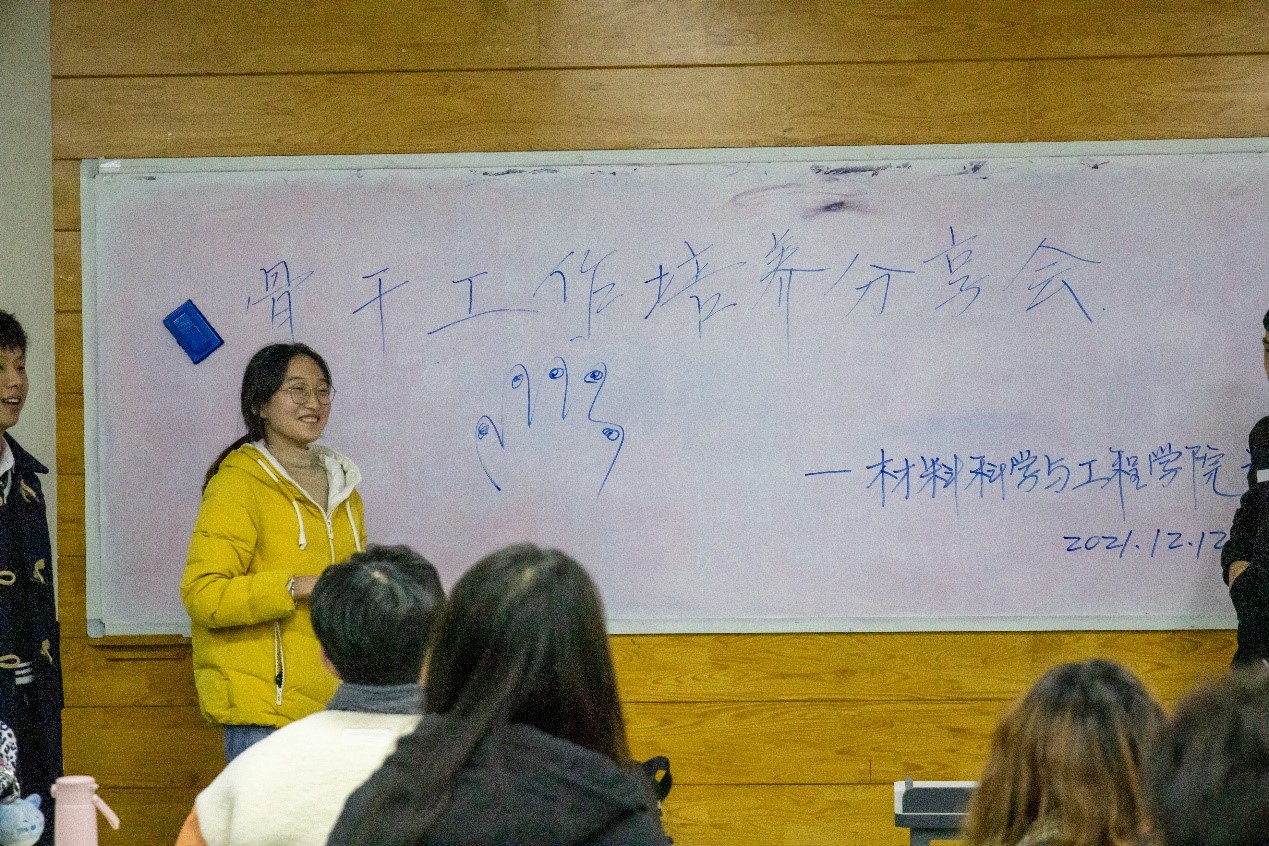 骨干工作培养分享会
—材料科学与工程学院
2021.12.12